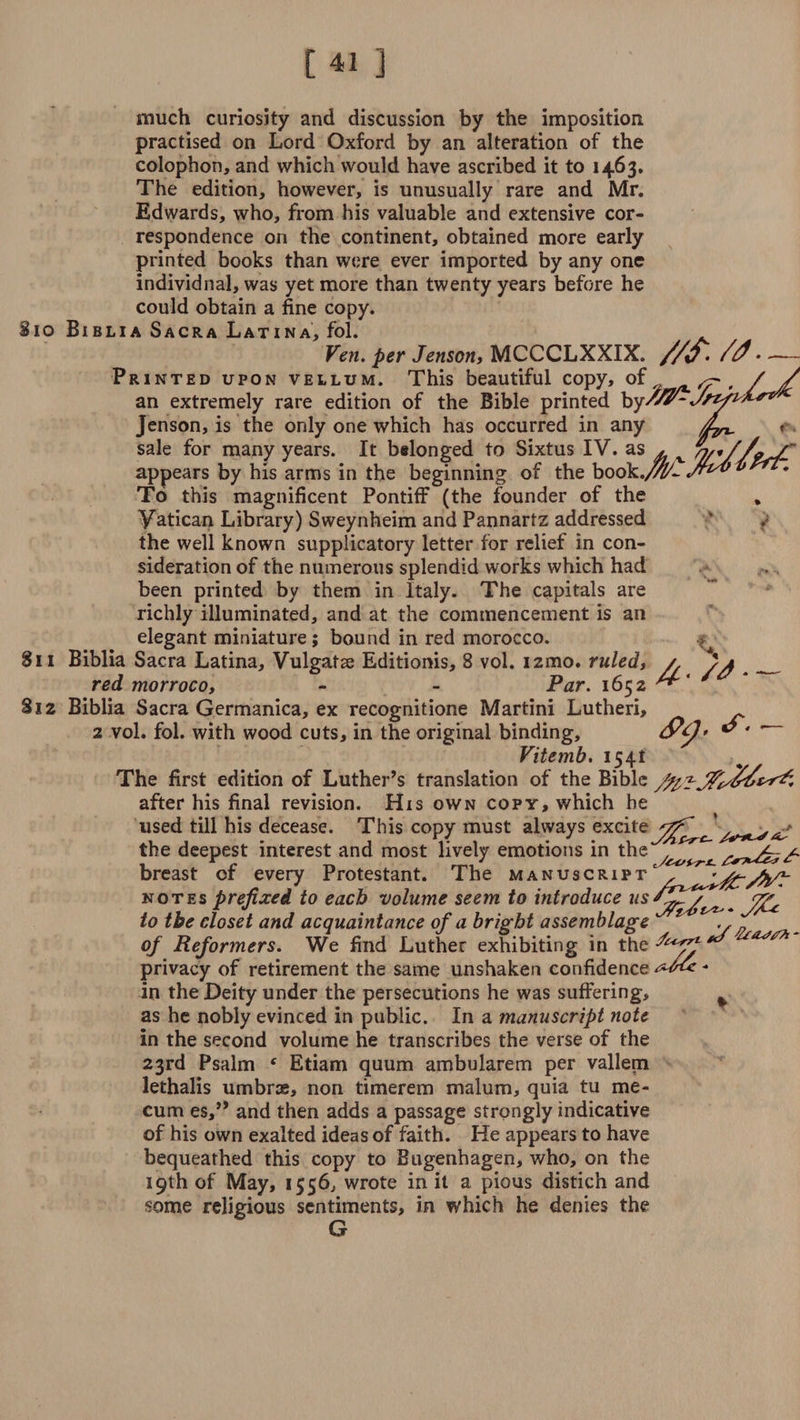 [ 41 ]
much curiosity and discussion by the imposition
practised on Lord Oxford by an alteration of the
colophon, and which would have ascribed it to 1463.
The edition, however, is unusually rare and Mr.
Edwards, who, from his valuable and extensive cor-
respondence on the continent, obtained more early
printed books than were ever imported by any one
individnal, was yet more than twenty years before he
could obtain a fine copy.
810 BIBLIA SACRA LATINA, fol.
Ven. per Jenson, MCCCLXXIX.
PRINTED UPON VELLUM. This beautiful copy, of
an extremely rare edition of the Bible printed by
Jenson, is the only one which has occurred in any
for
sale for many years. It belonged to Sixtus IV. as
appears by his arms in the beginning of the book. Mr Hibbert.
To this magnificent Pontiff (the founder of the
Vatican Library) Sweynheim and Pannartz addressed
the well known supplicatory letter for relief in con-
sideration of the numerous splendid works which had
been printed by them in Italy. The capitals are
richly illuminated, and at the commencement is an
elegant miniature; bound in red morocco.
811 Biblia Sacra Latina, Vulgatæ Editionis, 8 vol. 12mo. ruled,
red morroco, - - Par. 1652 4. 10. —
812 Biblia Sacra Germanica, ex recognitione Martini Lutheri,
2 vol. fol. with wood cuts, in the original binding, 89. 5. —
Vitemb. 1541
The first edition of Luther's translation of the Bible Mr Hibbert.
after his final revision. HIS OWN COPY, which he
used till his decease. This copy must always excite
the deepest interest and most lively emotions in the
breast of every Protestant. The MANUSCRIPT
NOTES prefixed to each volume seem to introduce us
to the closet and acquaintance of a bright assemblage The
of Reformers. We find Luther exhibiting in the
privacy of retirement the same unshaken confidence
in the Deity under the persecutions he was suffering,
as he nobly evinced in public. In a manuscript note
in the second volume he transcribes the verse of the
23rd Psalm “ Etiam quum ambularem per vallem
lethalis umbræ, non timerem malum, quia tu me-
cum es,” and then adds a passage strongly indicative
of his own exalted ideas of faith. He appears to have
bequeathed this copy to Bugenhagen, who, on the
19th of May, 1556, wrote in it a pious distich and
some religious sentiments, in which he denies the
G